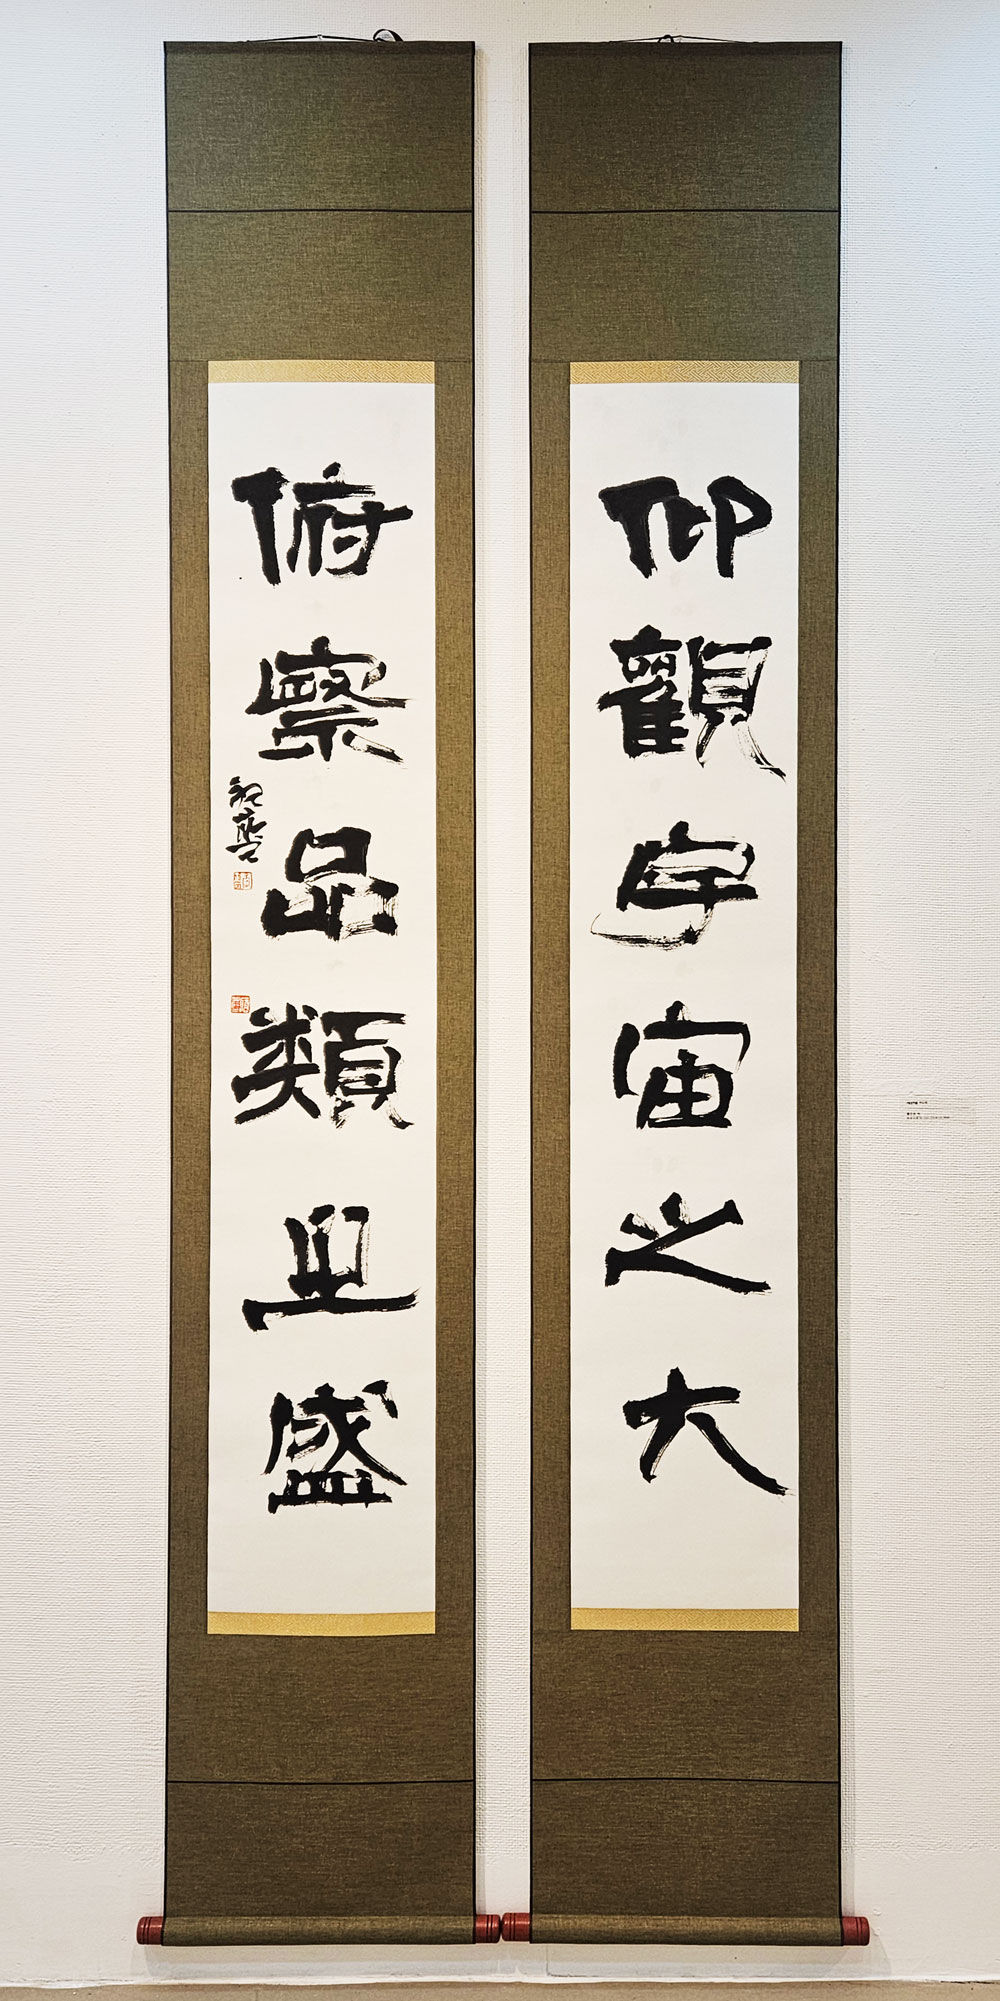 仰觀宇宙之大
俯察品類且盛